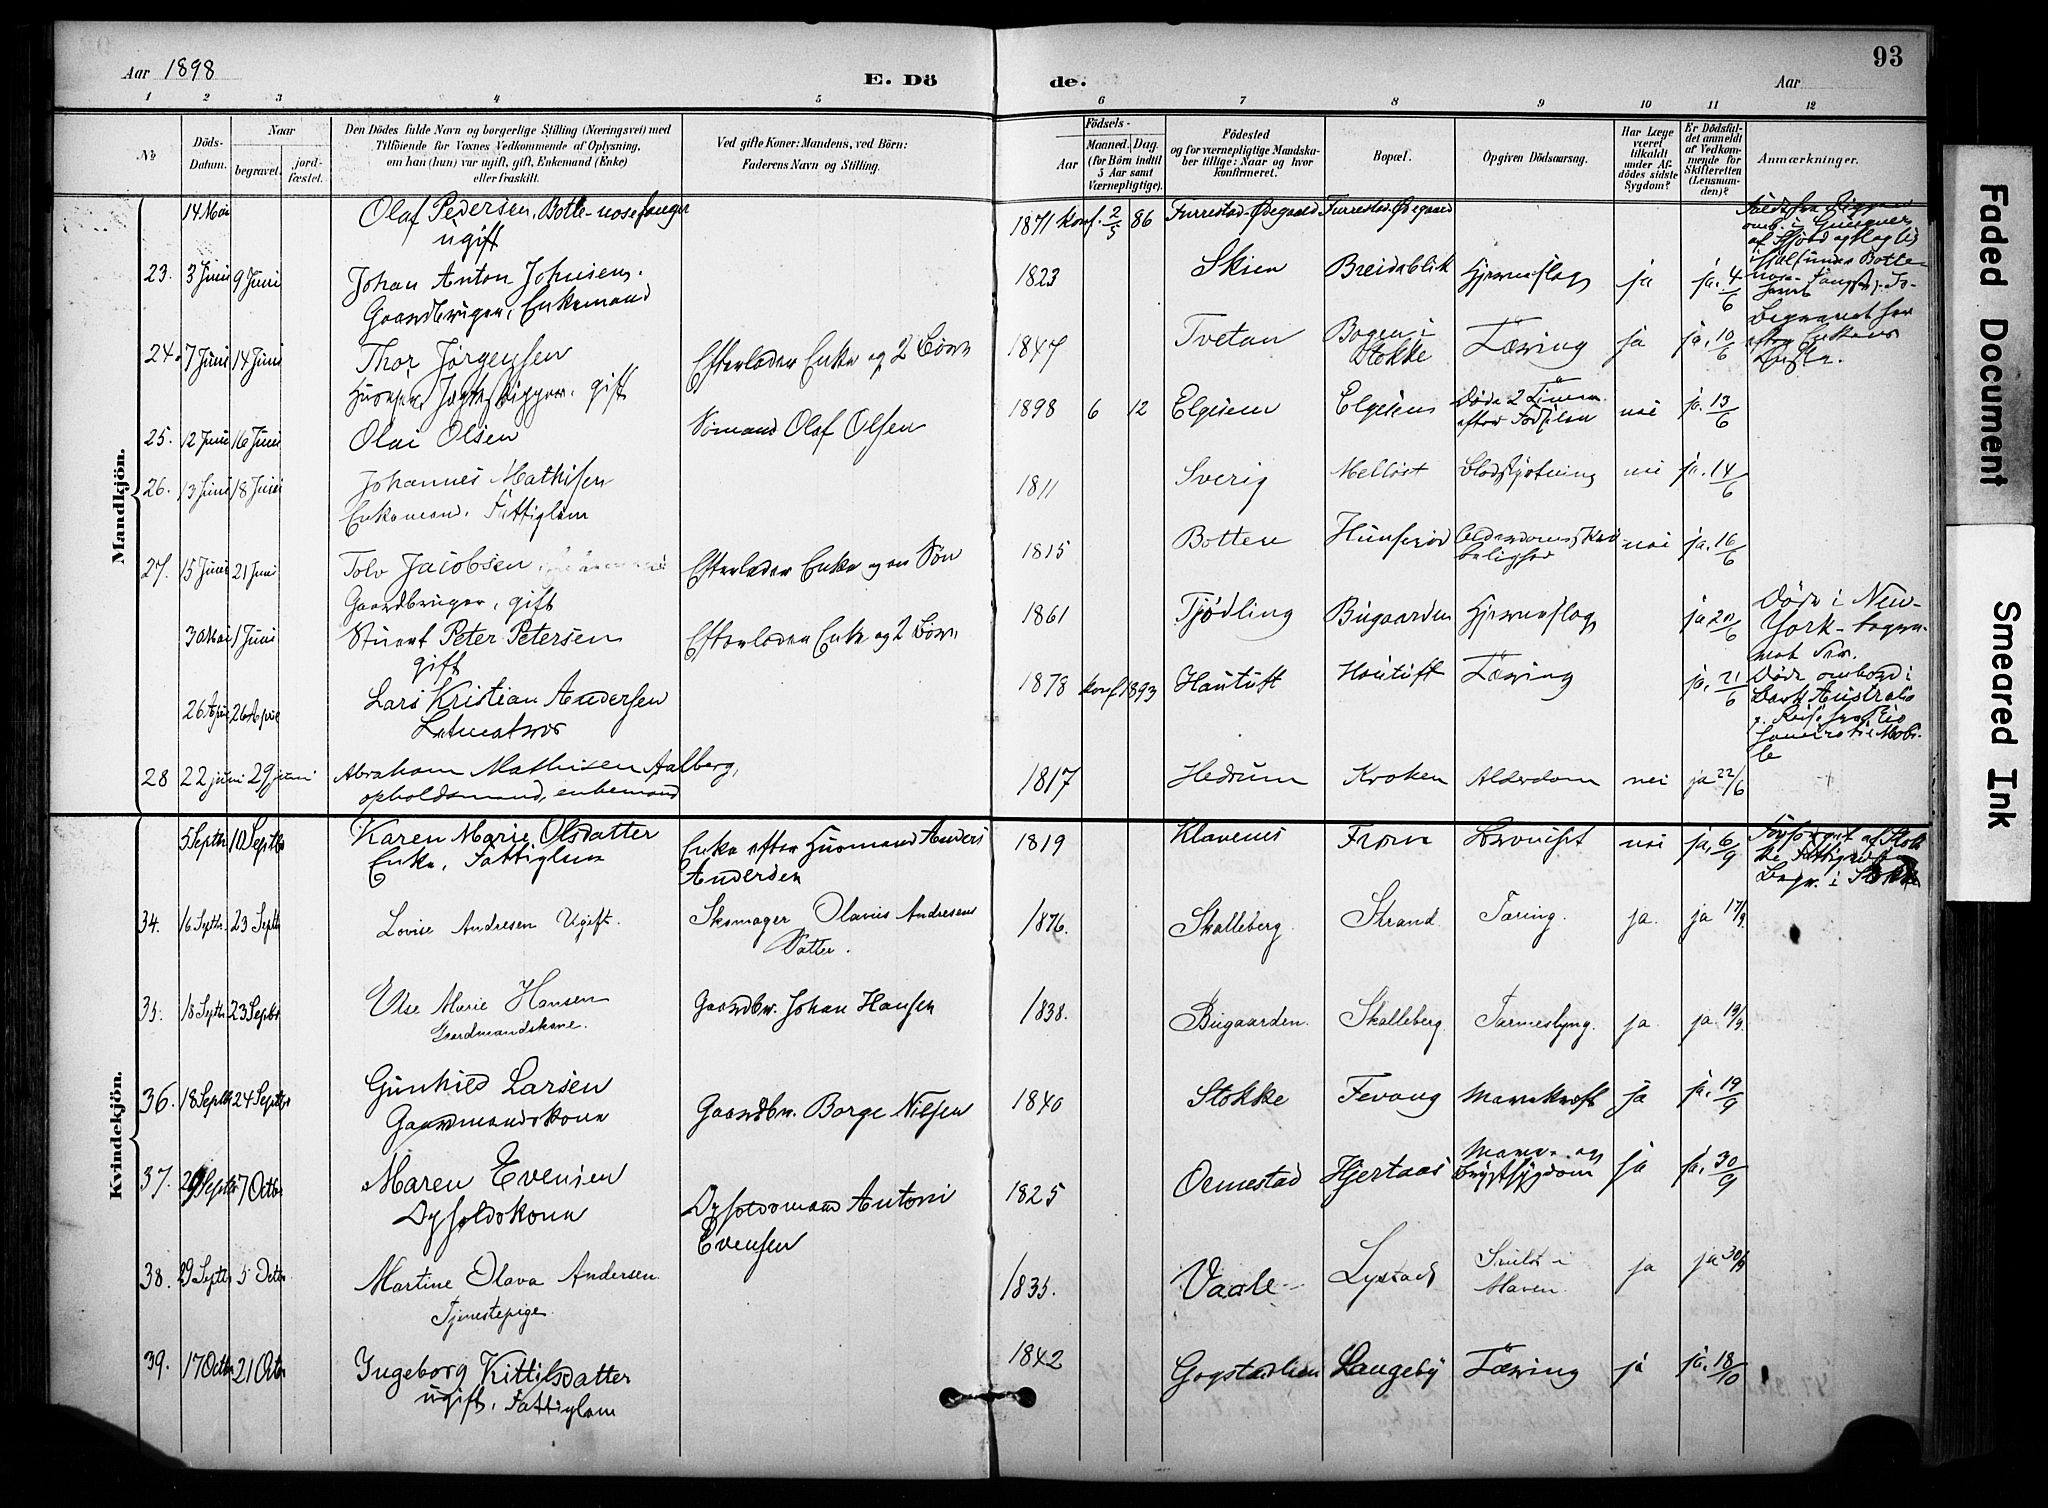 93
Aar 1898 E. Dö de. Aar
1 2 3 4 5 6 7 8 9 10 11 12
No
Döds-Datum.
Naar
begravet. jord-fæstet.
Den Dödes fulde Navn og borgerlige Stilling (Næringsvei) med
Tilföiende for Voxnes Vedkommende af Oplysning,
om han (hun) var ugift, gift, Enkemand (Enke)
eller fraskilt.
Ved gifte Koner: Mandens, ved Börn:
Faderens Navn og Stilling.
Födsels-
Aar Maaned. Dag.
(for Börn indtil
5 Aar samt
Værnepligtige).
Födested
og for værnepligtige Mandska-
ber tillige: Naar og hvor
konfirmeret.
Bopæl.
Opgiven Dödsaarsag.
Har Læge
været
tilkaldt
under Af-
dödes sidste
Sygdom?
Er Dödsfal-
det anmeldt
af Vedkom-
mende for
Skifteretten
(Lensman-
den)?
Anmærkninger.
Mandkjön.
14 Mai Olaf Pedersen, Bottle-nosefanger 1871 konf. 2/5 86 Furrestad-Ødegaard Furrestad-Ødegaard
ugift
23. 3 Juni 9 Juni Johan Anton Johnsen. 1823 Skien Breidablik Hjerneslag ja ja. 4/6
Gaardbruger, Enkemand
24. 7 Juni 14 Juni Thor Jørgensen Efterlader Enke og 2 Børn 1847 Tvetan Bogen i Stokke Tæring ja ja. 10/6
gift
25. 12 Juni 16 Juni Olai Olsen Sømand Olaf Olsen 1898 6 12 Elgesem Elgesem Døde 2 Timer efter Fødselen nei ja. 13/6
26. 13 Juni 18 Juni Johannes Mathisen 1811 Sverig Melløst nei ja. 14/6
Enkemand. Fattiglem
27. 15 Juni 21 Juni Tolv Jacobsen Efterlader Enke og en Søn 1815 Botten Hunserød nei ja. 16/6
Gaardbruger, gift
30 Mai 1 Juni Stuert Peter Petersen Efterlader Enke og 2 Børn 1861 Tjødling Bugaarden Hjerneslag ja 20/6 Døde i New-York-
gift
26 Apr 26 Apr Lars Kristian Andersen 1878 konf. 1893 Hautuft Hautuft Tæring ja. 21/6 Døde ombord i Bark Australia
Letmatros
28 22 juni 29 juni Abraham Mathisen Aalberg, 1817 Hedrum Kroken Alderdom nei ja 22/6
opholdsmand, enkemand
Kvindekjön.
5 Septbr 10 Septbr Karen Marie Olsdatter Enke efter Husmand Anders Andersen 1819 Klavenes nei ja, 6/9
Enke, Fattiglem
34. 16 Septbr. 23 Septb Lovise Andresen Ugift. Skomager Olavus Andresens Datter. 1876. Skalleberg. Strand. Tæring. ja. ja 17/9.
35. 18 Septbr 23 Septbr Else Marie Hansen Gaardbr. Johan Hansen 1838. Bugaarden. Skalleberg. Tarmeslyng. ja. ja. 19/9.
Gaardmandskone.
36. 18 Septbr 24 Septbr Gunhild Larsen Gaardbr. Borge Nilsen 1840 Stokke Fevang Mavekræft ja ja. 19/9
Gaardmandskone
37. 29 Septbr 7 Octbr Maren Evensen Opholdsmand Antoni Evensen 1825 Ormestad Hjertaas Mave- og Brystsygdom ja ja, 30/9
Opholdskone
38. 29 Septbr 5 Octbr Martine Olava Andersen 1835. Vaale Lystad i Maven. ja ja 30/9
Tjenestepige
39. 17 Octbr 21 Octbr Ingeborg Kittilsdatter 1842 Gogstadlien Langeby Tæring ja ja, 18/10
ugift, Fattiglem
Faded Document
Smeared Ink